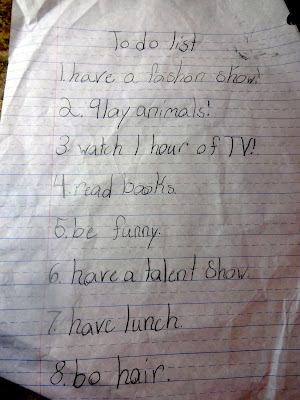 To do list
1. have a fashon show!
2. 9lay animals!
3. watch 1 hour of TV!
4. read books.
5. be funny.
6. have a talent Show.
7. have lunch.
8. bo hair.